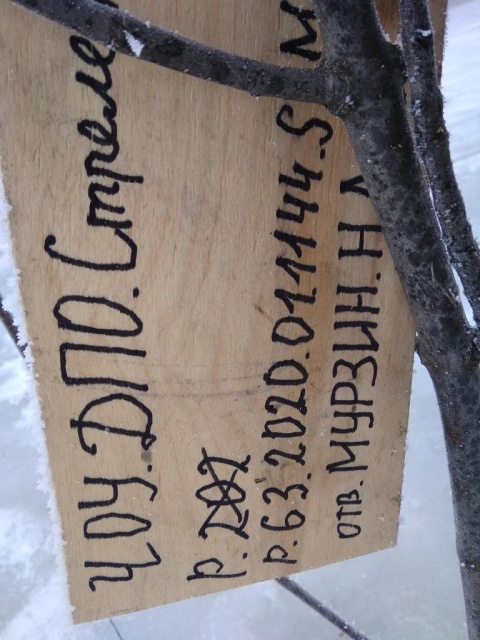 ЧОУ.ДПО.Стреле
Р.
Р.63.2020.011144.S М
ОТВ. МУРЗИН.Н